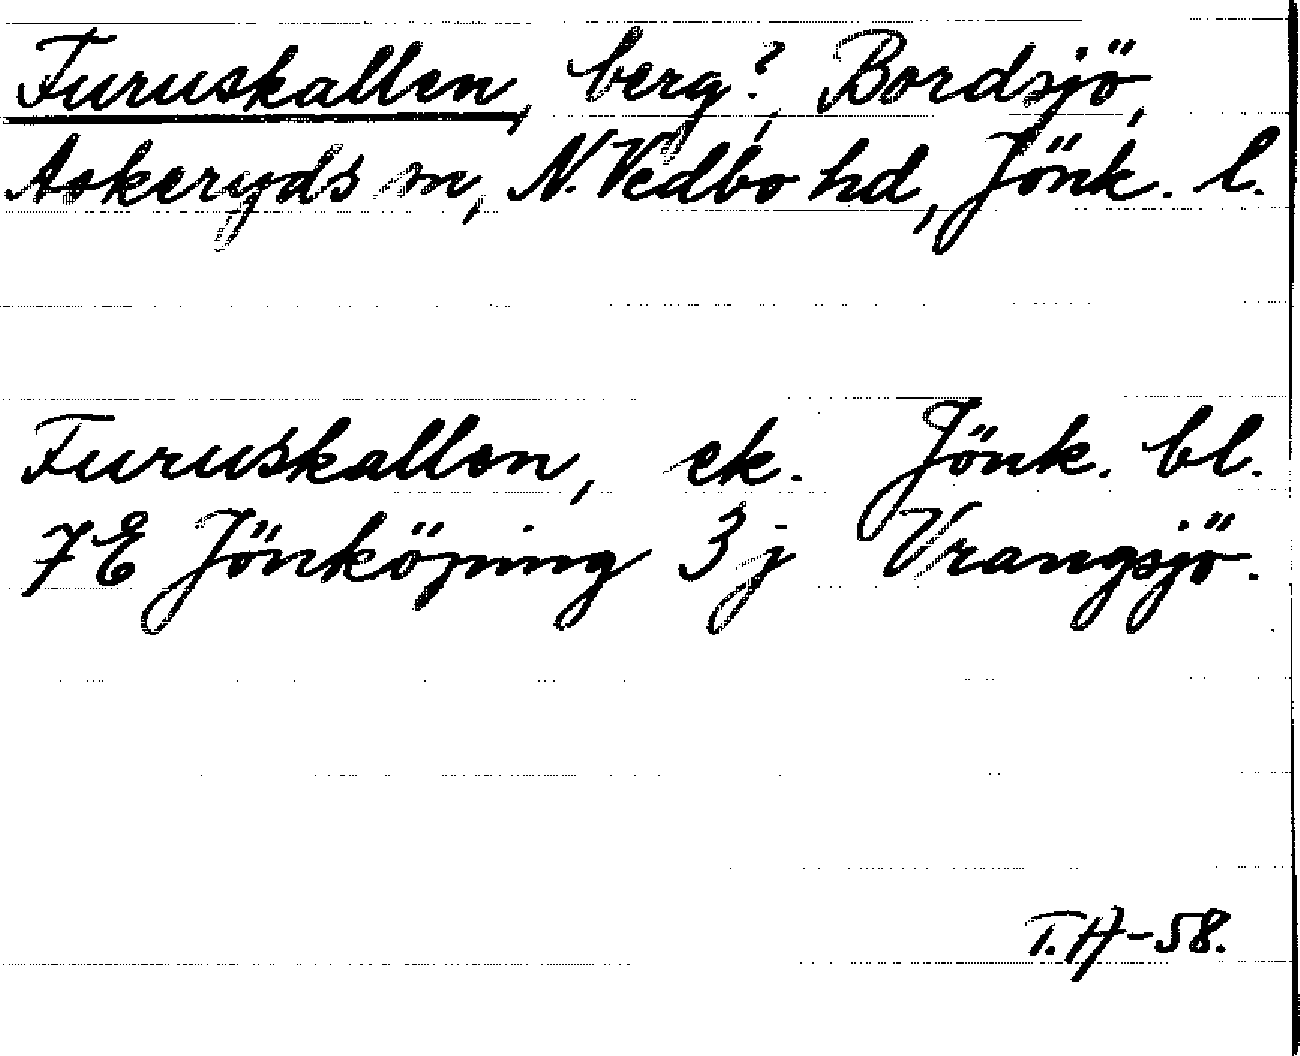 Furuskallen, berg?, Bordsjö,
Askeryds sn, N. Vedbo hd, Jönk. l.
Furuskallen, ek. Jönk. bl.
7E Jönköping 3j Vrangsjö.
T.H-58.